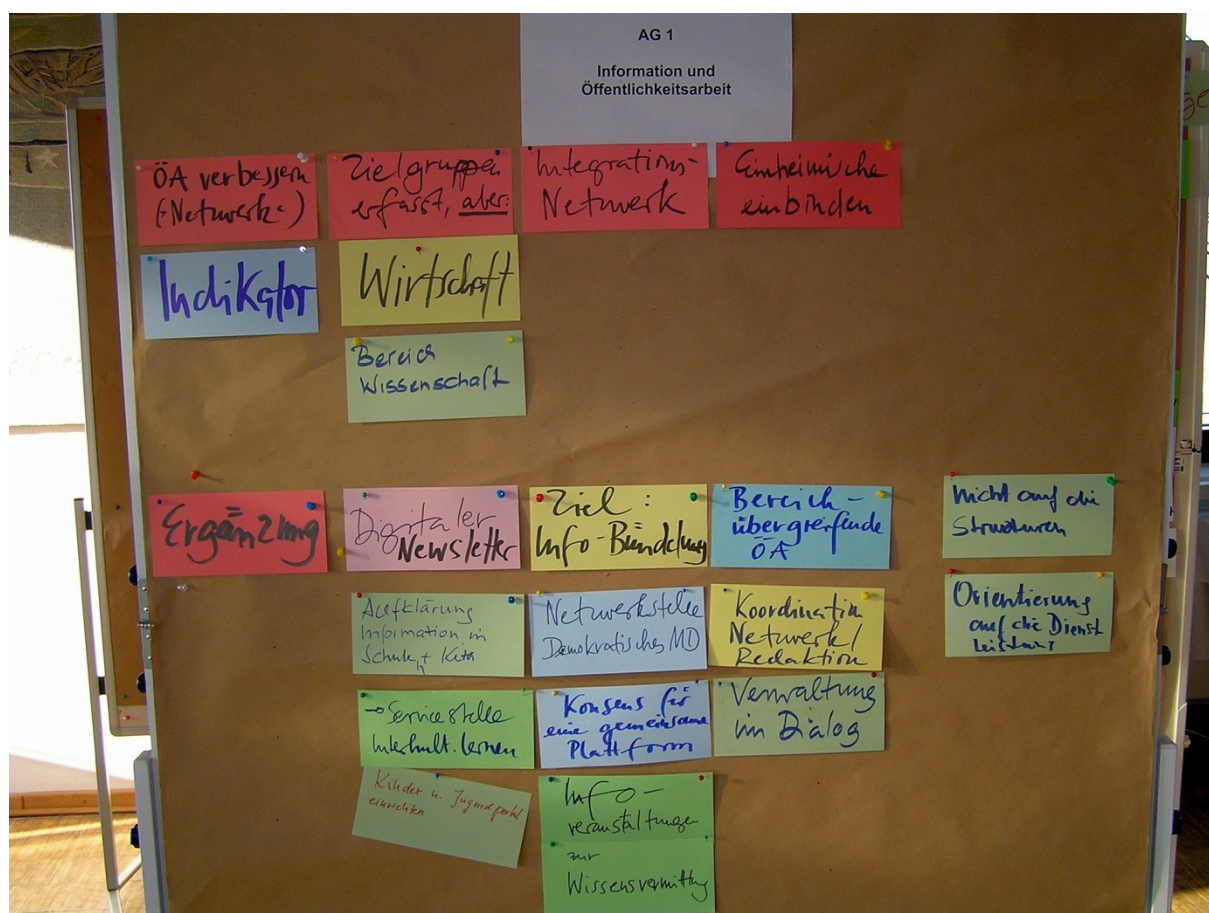 AG 1
Information und
Öffentlichkeitsarbeit
ÖA verbessern
(-Netzwerk-)
Zielgruppen
erfasst, aber:
Integrations-
Netzwerk
Einheimische
einbinden
Indikator
Wirtschaft
Bereich
Wissenschaft
Ergänzung
Digitaler
Newsletter
Ziel:
Info-Bündelung
Bereich-
übergreifende
ÖA
nicht auf die
Strukturen
Aufklärung
Information in
Schulen + Kita
Netzwerkstelle
Demokratisches MD
Koordination
Netzwerk/
Redaktion
Orientierung
auf die Dienst
leistung
→ Servicestelle
Interkult. lernen
Konsens für
eine gemeinsame
Plattform
Verwaltung
im Dialog
Kinder u. Jugendportal
einrichten
Info-
veranstaltungen
zur
Wissensvermittlg